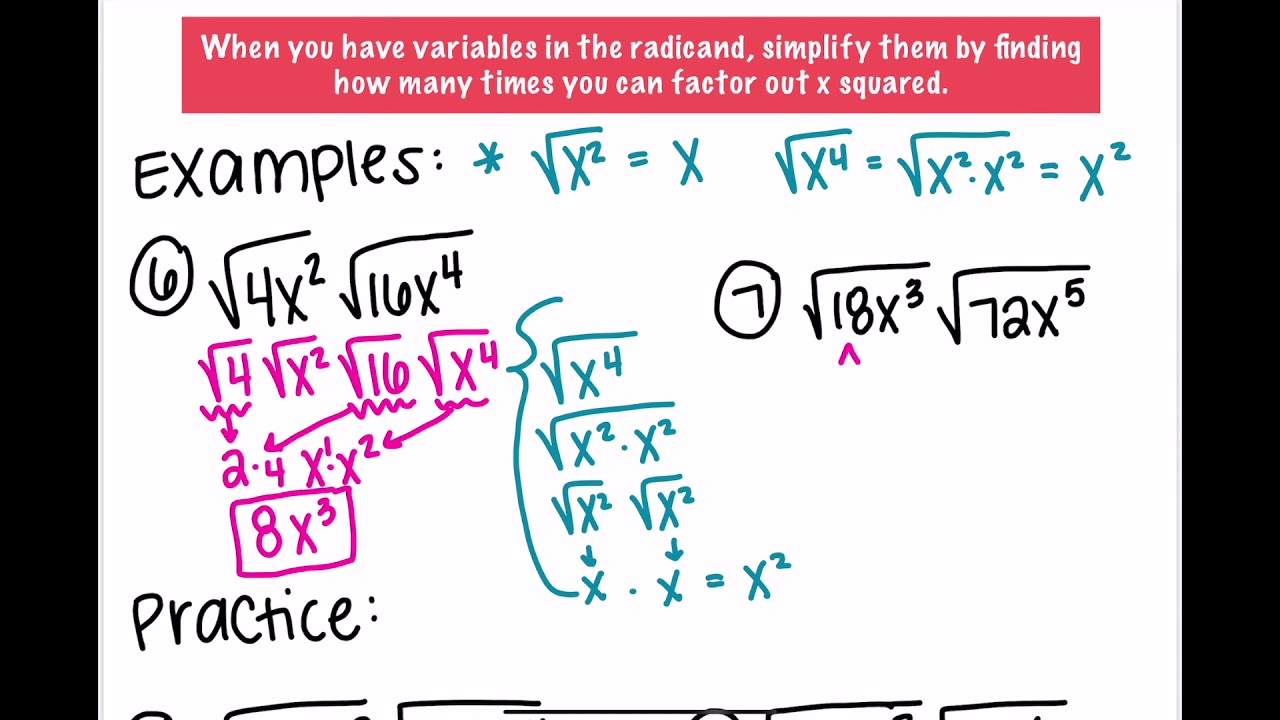 When you have variables in the radicand, simplify them by finding
how many times you can factor out x squared.
Examples: * √x² = x √x⁴ = √x²·x² = x²
6 √4x² √16x⁴
√4 √x² √16 √x⁴
2·4 x¹·x²
8x³
√x⁴
√x²·x²
√x² √x²
x · x = x²
7 √18x³ √72x⁵
^
Practice: